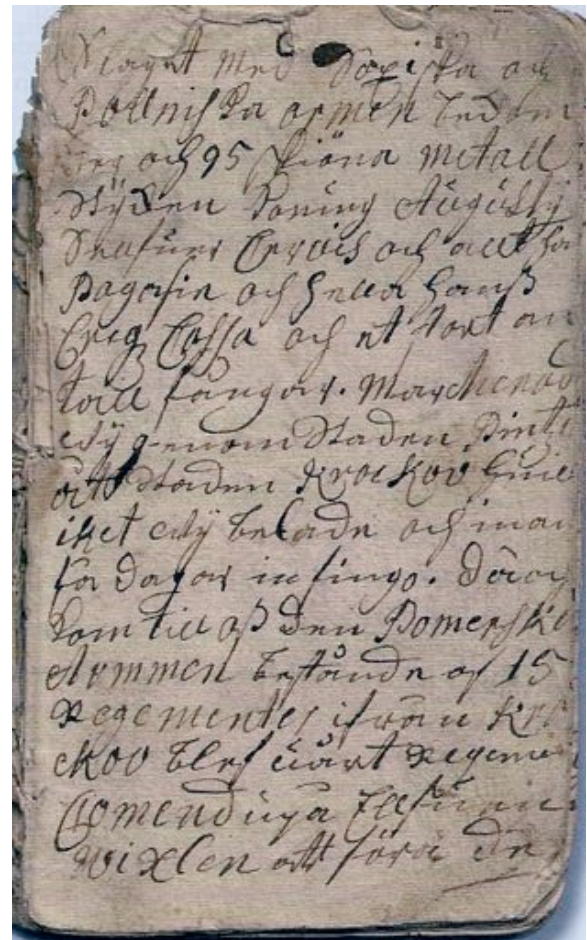 Slaget med Saxiska och
Pollniska armen
och 95 skiöna metall
stÿcken Koning Augusti
Servis och allt ha
Magasin och hella hans
Crigz Cassa och et stort an
tall fångar. Marcherade
wÿ genom Staden Pint
åt staden Krockov hui
iket wÿ belade och inan
få dagar infingo. där
kom till oß den Pomerska
Arommen bestånde af 15
Regementer ifrån Kro
ckov blef wårt Regeme
Comenduga
wixlen att föra de